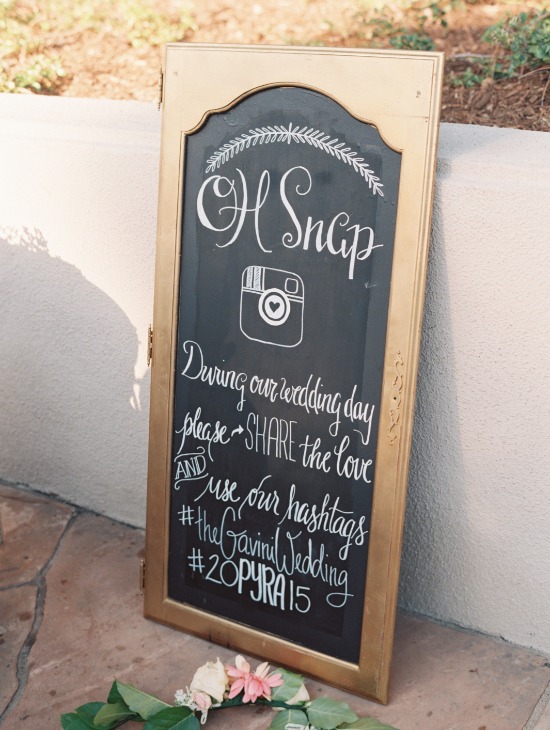 OH Snap
During our wedding day
please → SHARE the love
AND use our hashtags
#theGaviniWedding
#20PYRA15